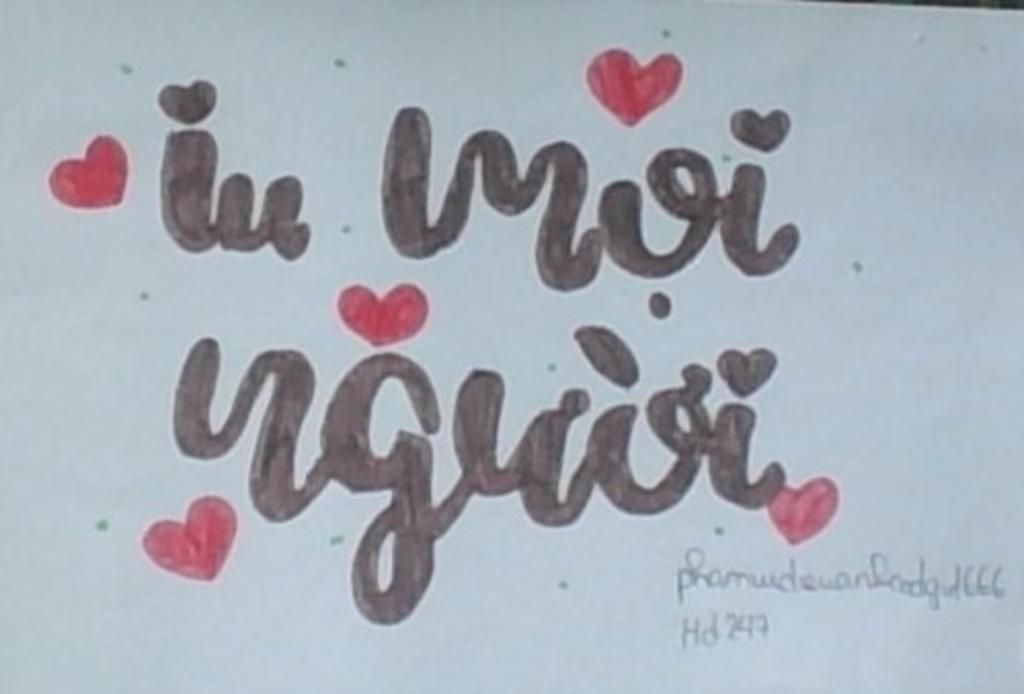 iu mọi
người
Hd 247